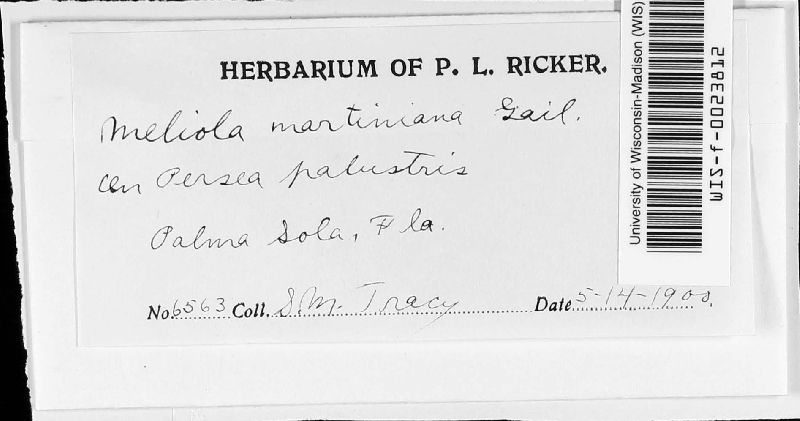 HERBARIUM OF P. L. RICKER.
Meliola martiniana Gail.
On Persea palustris
Palma Sola, Fla.
No 6563 Coll. S.M. Tracy Date 5-14-1900.
University of Wisconsin-Madison (WIS)
WIS-f-0023812